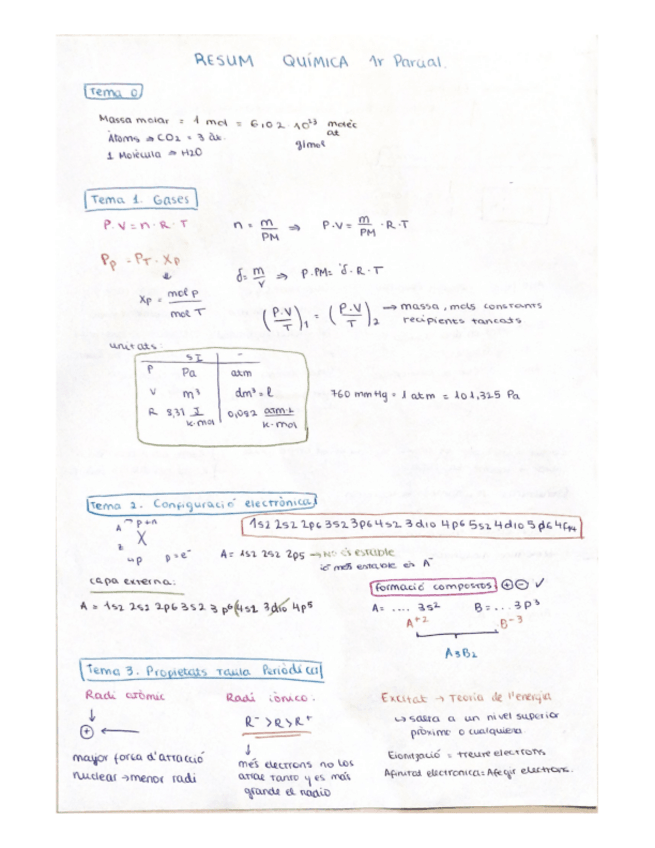 RESUM QUÍMICA 1r Parcial.
Tema 0
Massa molar = 1 mol = 6,02 · 10²³ molèc
at
g/mol
Àtoms ⇒ CO2 = 3 àt.
1 Molècula ⇒ H2O
Tema 1. Gases
P.V = n · R · T
n = m/PM ⇒ P.V = m/PM · R · T
Pp = PT · Xp
δ = m/V ⇒ P.PM = δ · R · T
Xp = mol p / mol T
(P.V/T)1 = (P.V/T)2 → massa, mols constants
recipients tancats
unitats:
SI -
P Pa atm
V m³ dm³ = l
R 8,31 J/K·mol 0,082 atm·L/K·mol
760 mmHg = 1 atm = 101,325 Pa
Tema 2. Configuració electrònica
1s2 2s2 2p6 3s2 3p6 4s2 3d10 4p6 5s2 4d10 5p6 4f14
A → p+n
X
Z → p
p = e⁻
A = 1s2 2s2 2p5 → No és estable
ió més estable és A⁻
capa externa:
A = 1s2 2s2 2p6 3s2 3p6 4s2 3d10 4p5
formació compostos: ⊕⊖ ✓
A = .... 3s² B = ... 3p³
A⁺² B⁻³
A3B2
Tema 3. Propietats Taula Periòdica
Radi atòmic
⊕ ←
major força d'atracció
nuclear → menor radi
Radi iònico:
R⁻ > R > R⁺
més electrons no los
atrae tanto y es más
grande el radio
Excitat → Teoria de l'energia
↪ salta a un nivel superior
próximo o cualquiera
Eionització = treure electrons
Afinitat electronica = Afegir electrons.